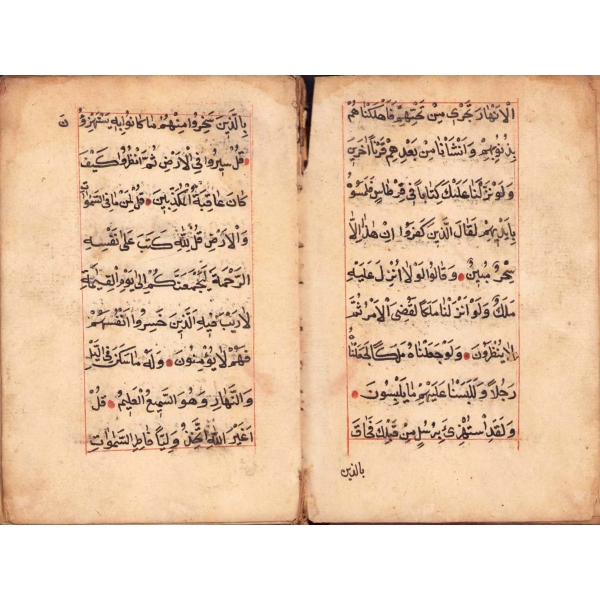 الْاَنْهَارَ تَجْرِي مِنْ تَحْتِهِمْ فَاَهْلَكْنَاهُمْ
بِذُنُوبِهِمْ وَاَنْشَاْنَا مِنْ بَعْدِهِمْ قَرْنًا اٰخَرِينَ
وَلَوْ نَزَّلْنَا عَلَيْكَ كِتَابًا فِي قِرْطَاسٍ فَلَمَسُوهُ
بِاَيْدِيهِمْ لَقَالَ الَّذِينَ كَفَرُوا اِنْ هٰذَا اِلَّا
سِحْرٌ مُبِينٌ وَقَالُوا لَوْلَا اُنْزِلَ عَلَيْهِ
مَلَكٌ وَلَوْ اَنْزَلْنَا مَلَكًا لَقُضِيَ الْاَمْرُ ثُمَّ
لَا يُنْظَرُونَ وَلَوْ جَعَلْنَاهُ مَلَكًا لَجَعَلْنَاهُ
رَجُلًا وَلَلَبَسْنَا عَلَيْهِمْ مَا يَلْبِسُونَ
وَلَقَدِ اسْتُهْزِئَ بِرُسُلٍ مِنْ قَبْلِكَ فَحَاقَ
بالذين
بِالَّذِينَ سَخِرُوا مِنْهُمْ مَا كَانُوا بِهِ يَسْتَهْزِؤُنَ
قُلْ سِيرُوا فِي الْاَرْضِ ثُمَّ انْظُرُوا كَيْفَ
كَانَ عَاقِبَةُ الْمُكَذِّبِينَ قُلْ لِمَنْ مَا فِي السَّمٰوَاتِ
وَالْاَرْضِ قُلْ لِلّٰهِ كَتَبَ عَلٰى نَفْسِهِ
الرَّحْمَةَ لَيَجْمَعَنَّكُمْ اِلٰى يَوْمِ الْقِيٰمَةِ
لَا رَيْبَ فِيهِ الَّذِينَ خَسِرُوا اَنْفُسَهُمْ
فَهُمْ لَا يُؤْمِنُونَ وَلَهُ مَا سَكَنَ فِي الَّيْلِ
وَالنَّهَارِ وَهُوَ السَّمِيعُ الْعَلِيمُ قُلْ
اَغَيْرَ اللّٰهِ اَتَّخِذُ وَلِيًّا فَاطِرِ السَّمٰوَاتِ